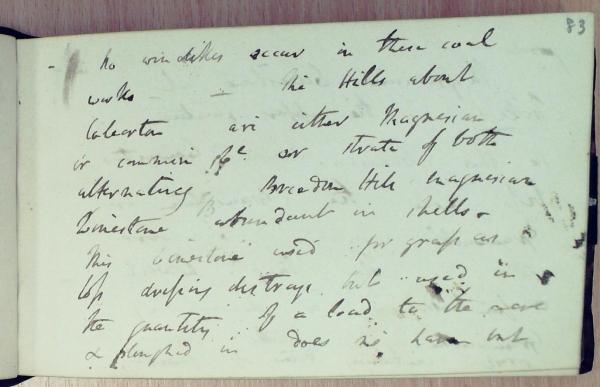 83
- no win dikes occur in these coal
works - The Hills about
are either Magnesian
or common or strata of both
alternating Breedon Hill magnesian
Limestone abundant in shells.
This limestone used for grass as
top dressing destroys but used in
the quantity of a load to the acre
& ploughed in does no harm but